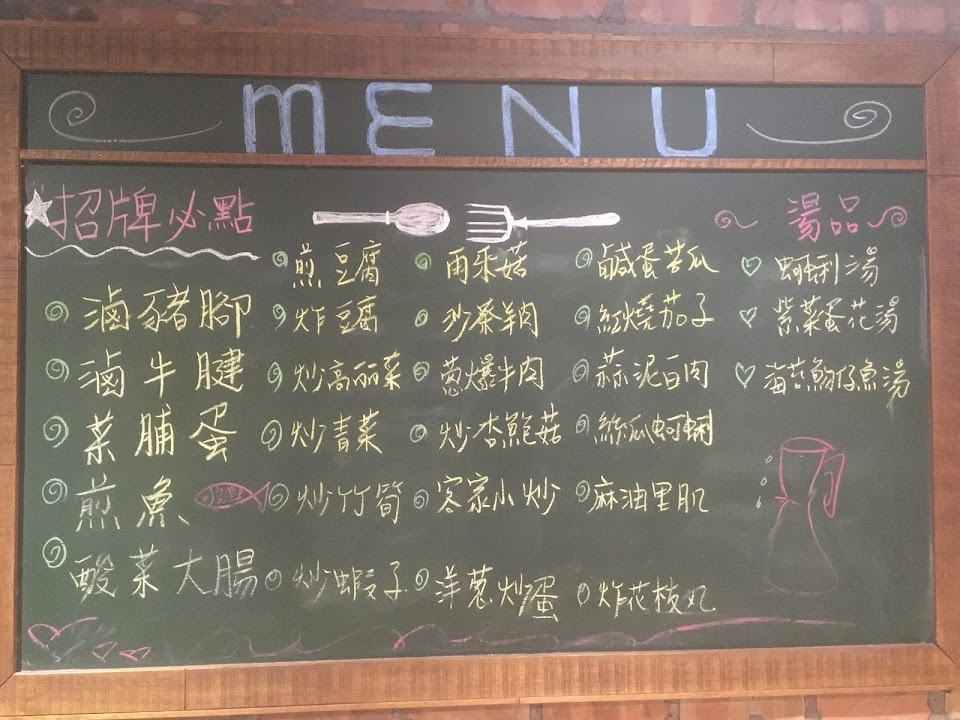 MENU
招牌必點
滷豬腳
滷牛腱
菜脯蛋
煎魚
酸菜大腸
煎豆腐
炸豆腐
炒高丽菜
炒青菜
炒竹筍
炒蝦子
雨來菇
沙茶羊肉
蔥爆牛肉
炒杏鮑菇
客家小炒
洋蔥炒蛋
鹹蛋苦瓜
紅燒茄子
蒜泥白肉
絲瓜蚵蜊
麻油里肌
炸花枝丸
湯品
蚵蜊湯
紫菜蛋花湯
海苔魩仔魚湯